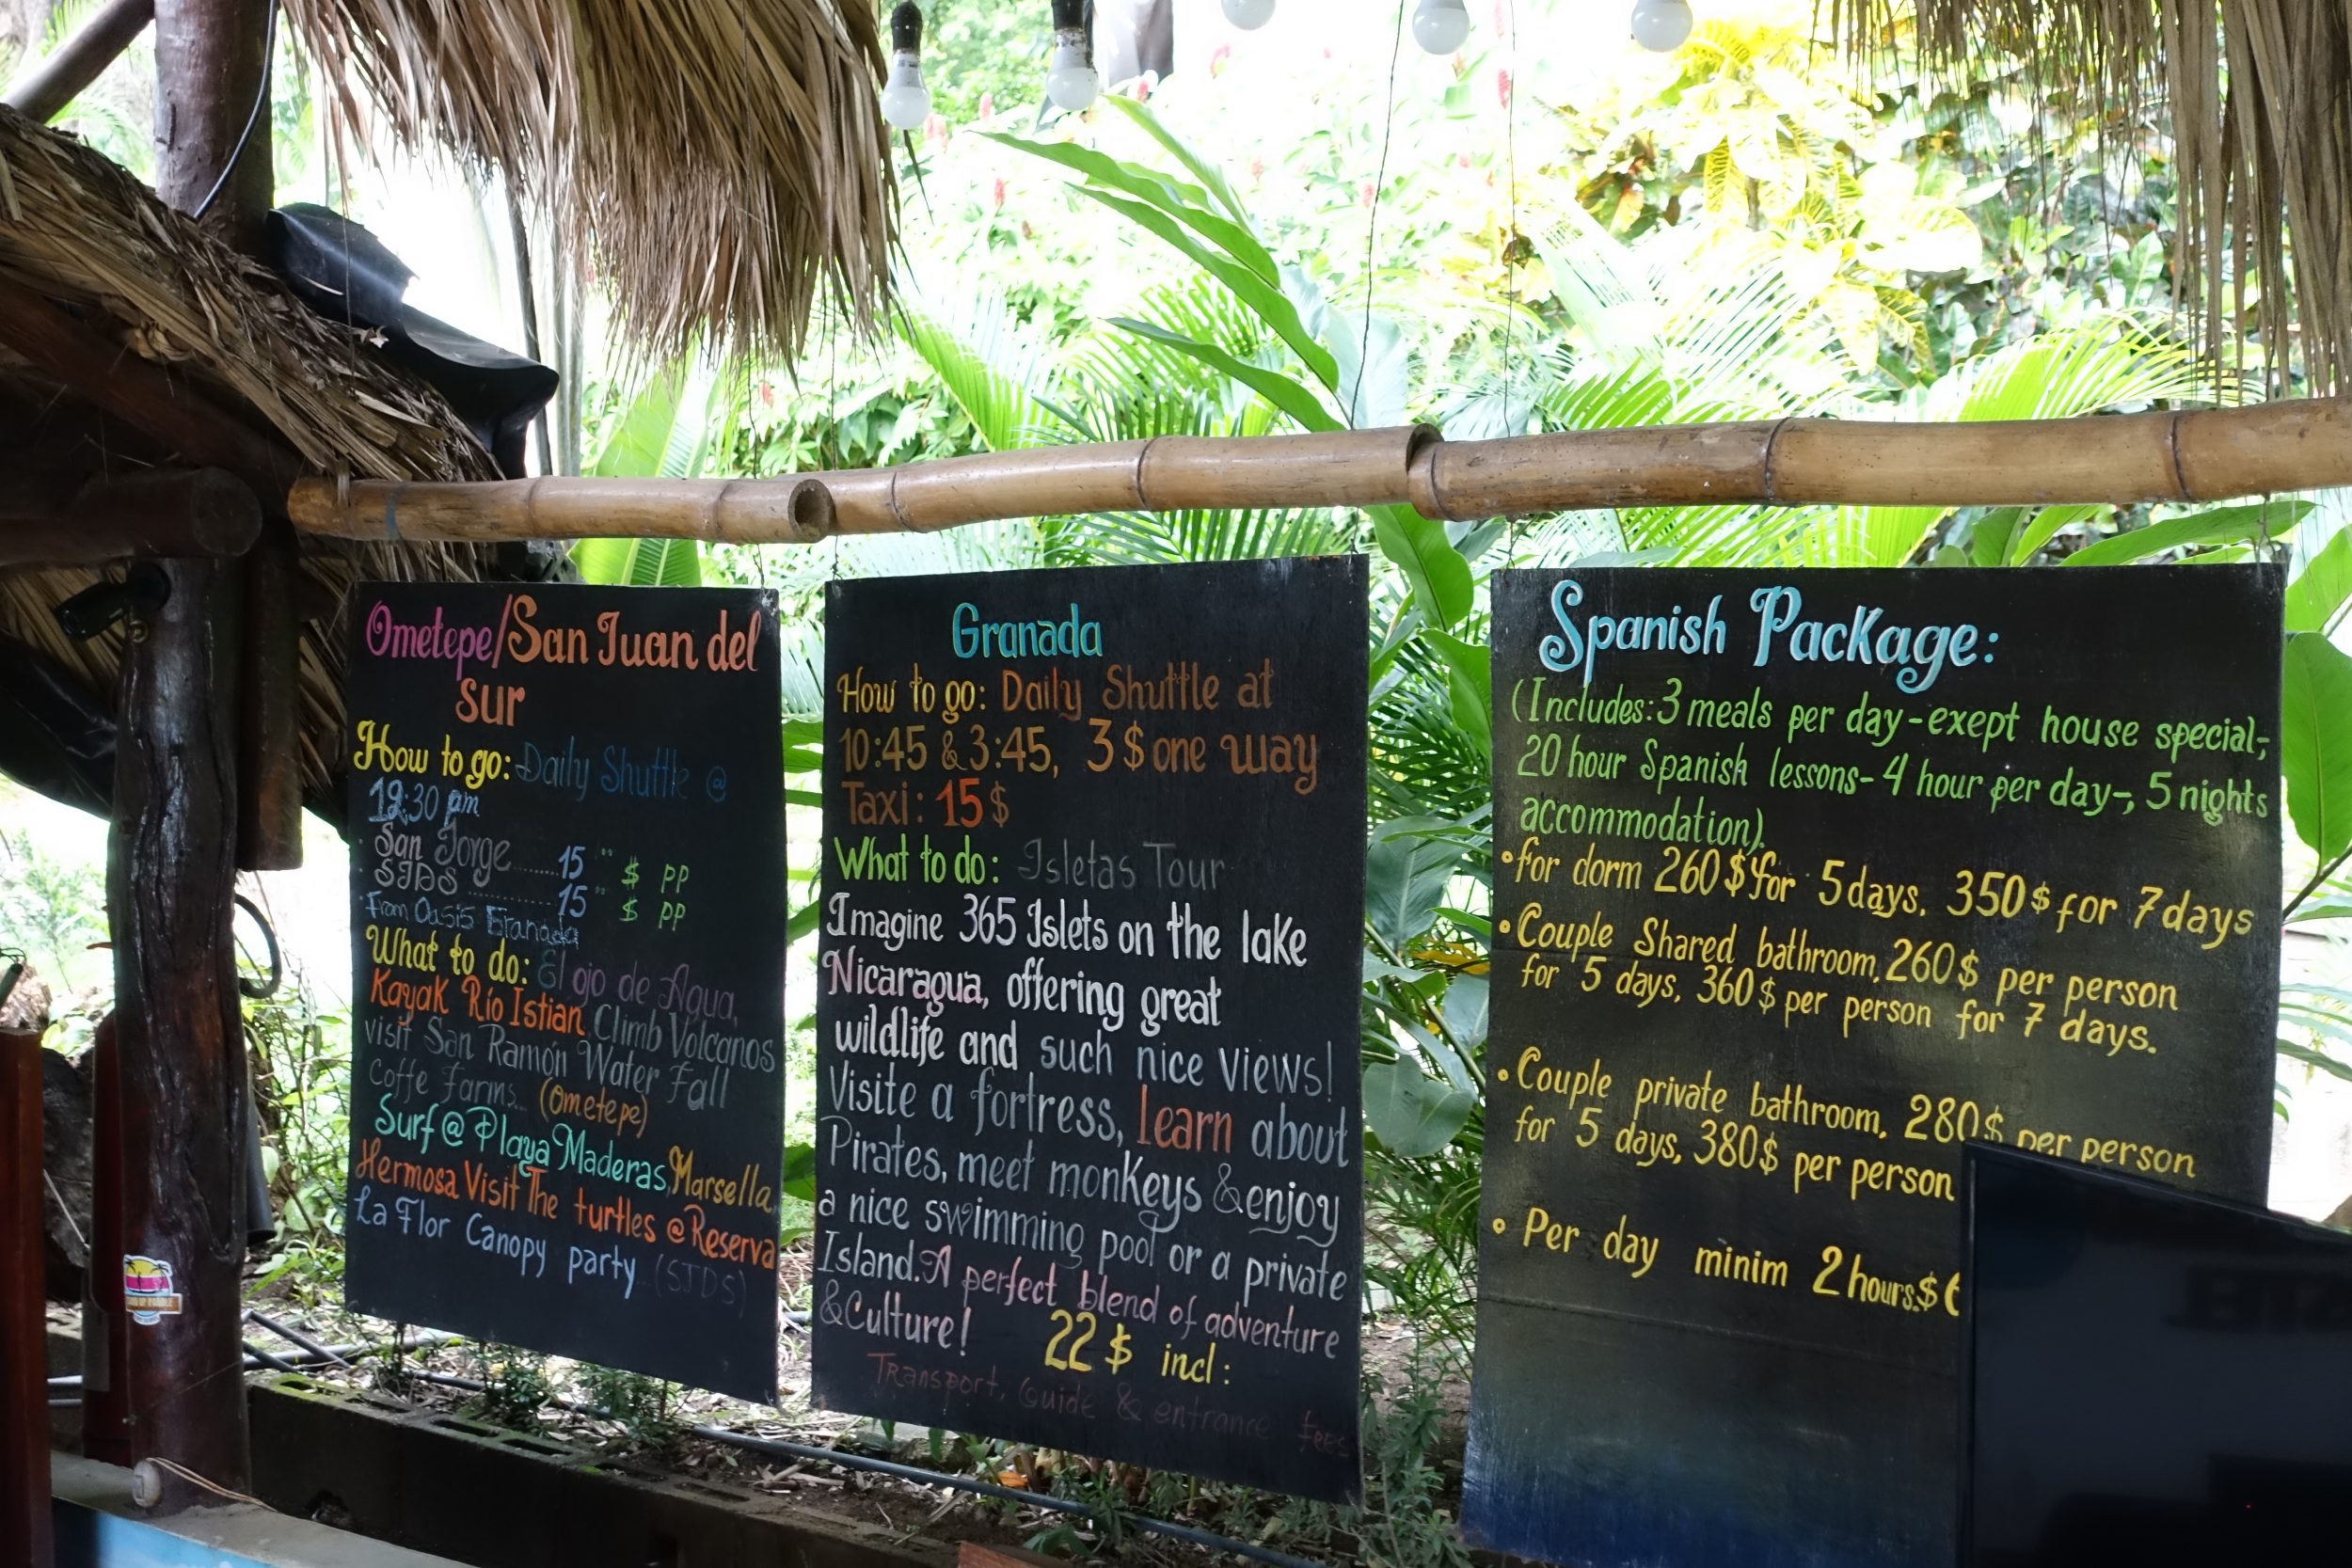 Ometepe/San Juan del
sur
How to go: Daily Shuttle @
12:30 pm
San Jorge........15 $ pp
SJDS ..............15 $ pp
From Oasis Granada
What to do: El ojo de Agua,
Kayak Río Istian, Climb Volcanos
visit San Ramón Water Fall
Coffe Farms... (Ometepe)
Surf @ Playa Maderas, Marsella,
Hermosa Visit The turtles @ Reserva
La Flor Canopy party (SJDS)
Granada
How to go: Daily Shuttle at
10:45 & 3:45, 3$ one way
Taxi: 15$
What to do: Isletas Tour
Imagine 365 Islets on the lake
Nicaragua, offering great
wildlife and such nice views!
Visite a fortress, learn about
Pirates, meet monkeys & enjoy
a nice swimming pool or a private
Island. A perfect blend of adventure
& Culture! 22$ incl:
Transport, Guide & entrance fees
Spanish Package:
(Includes: 3 meals per day - exept house special-,
20 hour Spanish lessons - 4 hour per day-, 5 nights
accommodation).
• for dorm 260$ for 5 days, 350$ for 7 days
• Couple Shared bathroom, 260$ per person
for 5 days, 360$ per person for 7 days.
• Couple private bathroom, 280$ per person
for 5 days, 380$ per person
• Per day minim 2 hours: $